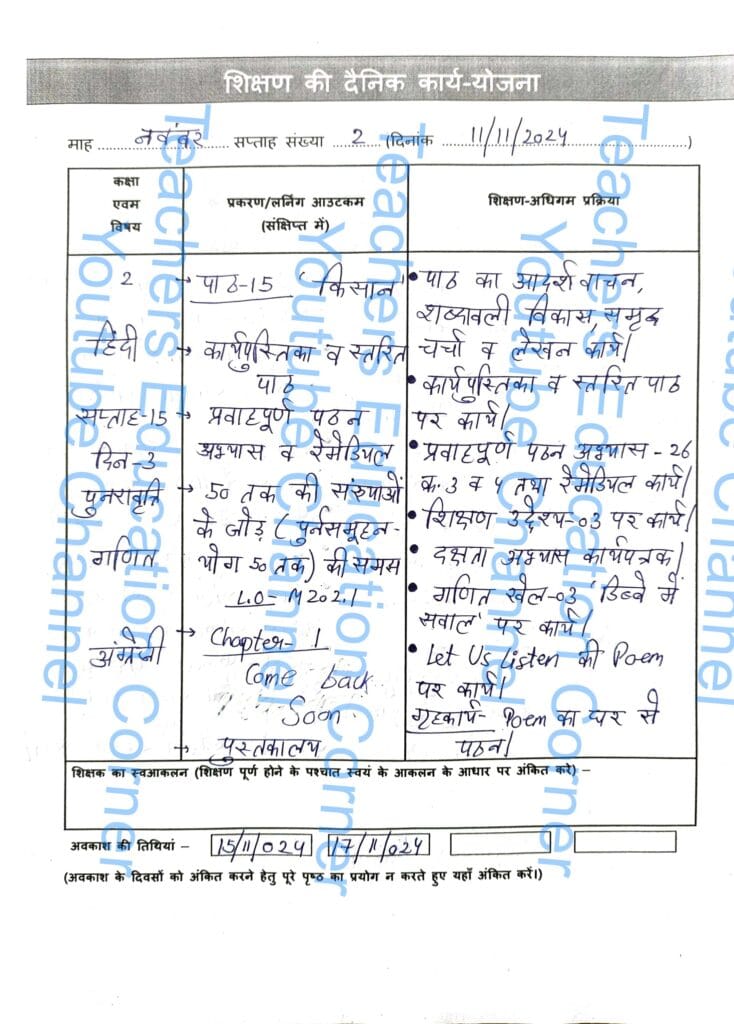 शिक्षण की दैनिक कार्य-योजना
माह नवंबर सप्ताह संख्या 2 (दिनांक 11/11/2024)
कक्षा
एवम
विषय
प्रकरण/लर्निंग आउटकम
(संक्षिप्त में)
शिक्षण-अधिगम प्रक्रिया
2
हिंदी
सप्ताह-15
दिन-3
पुनरावृत्ति
गणित
अंग्रेजी
→ पाठ-15 'किसान'
→ कार्यपुस्तिका व स्तरित
पाठ
→ प्रवाहपूर्ण पठन
अभ्यास व रेमेडियल
→ 50 तक की संख्याओं
के जोड़ (पुर्नसमूहन-
योग 50 तक) की समस
L.O- M202.1
→ Chapter- 1
Come back
Soon
→ पुस्तकालय
• पाठ का आदर्श वाचन,
शब्दावली विकास, समृद्ध
चर्चा व लेखन कार्य।
• कार्यपुस्तिका व स्तरित पाठ
पर कार्य।
• प्रवाहपूर्ण पठन अभ्यास - 26
क. 3 व 4 तथा रेमेडियल कार्य।
• शिक्षण उद्देश्य-03 पर कार्य।
• दक्षता अभ्यास कार्यपत्रक।
• गणित खेल-03 'डिब्बे में
सवाल' पर कार्य।
• Let Us Listen की Poem
पर कार्य।
गृहकार्य- Poem का घर से
पठन।
शिक्षक का स्वआकलन (शिक्षण पूर्ण होने के पश्चात स्वयं के आकलन के आधार पर अंकित करे) –
अवकाश की तिथियां – 15/11/024 17/11/024
(अवकाश के दिवसों को अंकित करने हेतु पूरे पृष्ठ का प्रयोग न करते हुए यहाँ अंकित करें।)
Teachers Education Corner
Youtube Channel
Teachers Education Corner
Youtube Channel
Teachers Education Corner
Youtube Channel